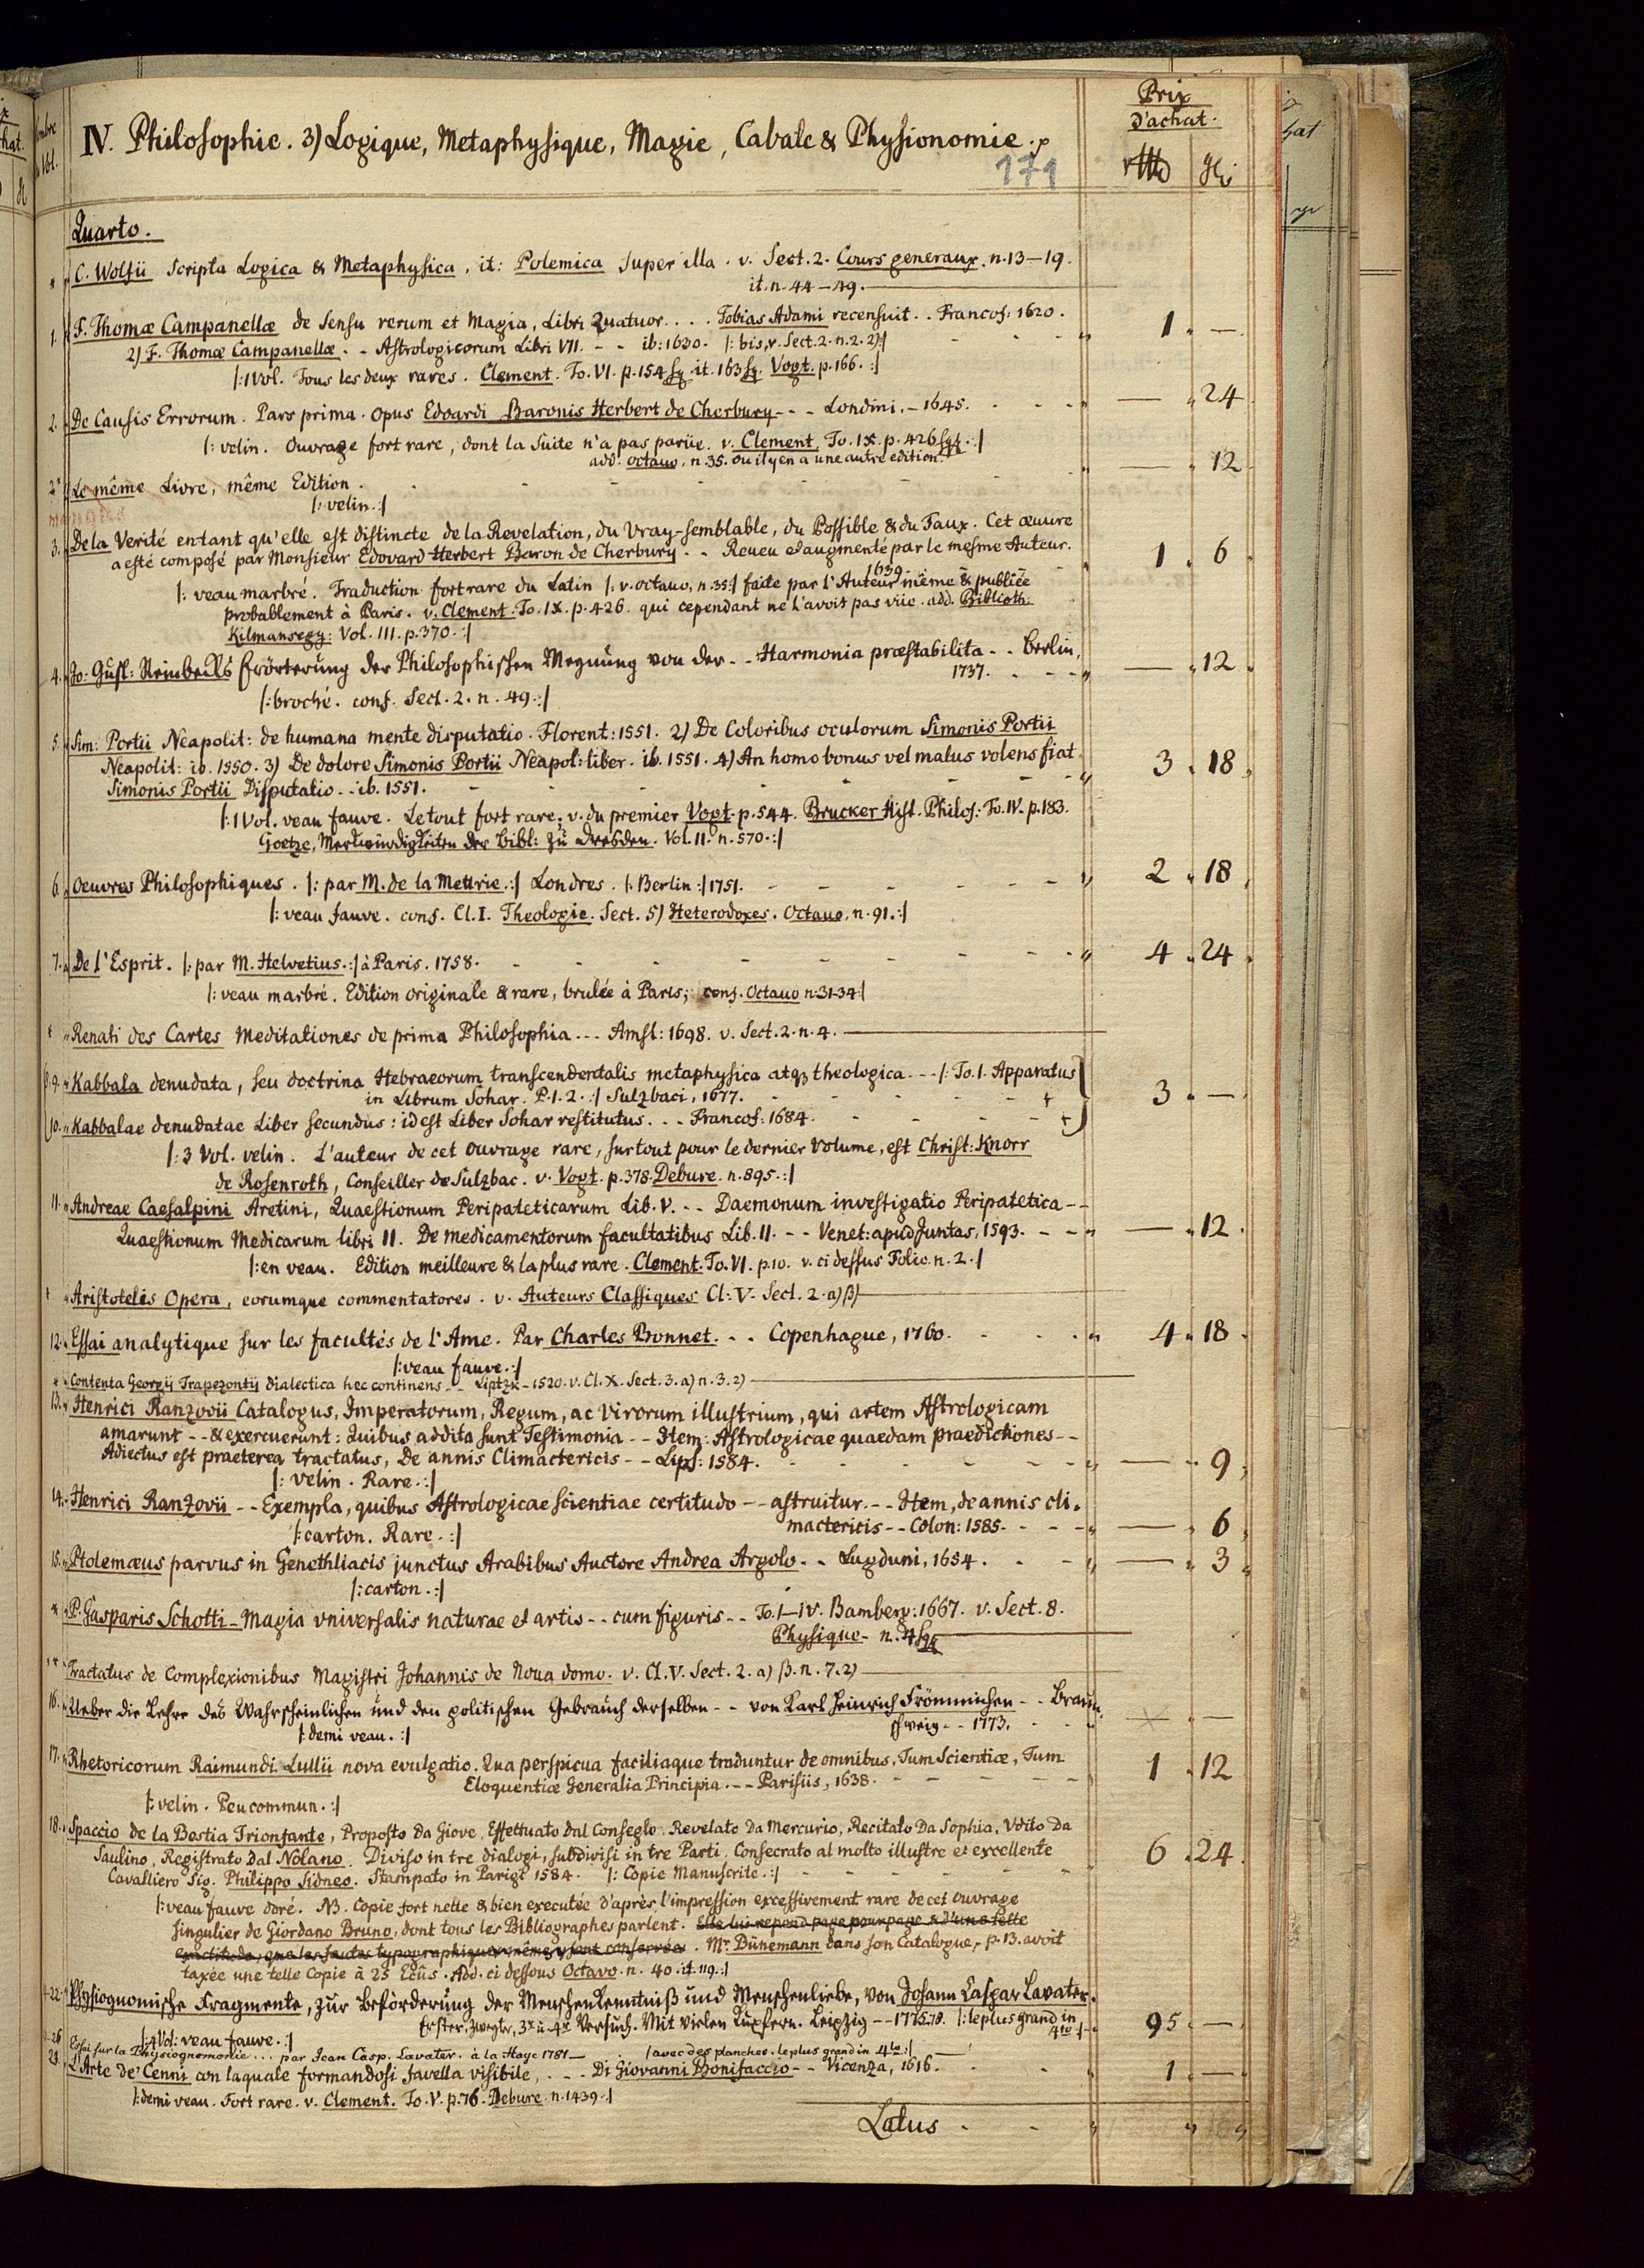 Prix
d'achat.
IV. Philosophie. 3) Logique, Metaphysique, Magie, Cabale & Physionomie.
171
Quarto.
C. Wolfii Scripta Logica & Metaphysica, it: Polemica super illa. v. Sect. 2. Cours generaux. n. 13-19.
it. n. 44-49.
1. F. Thomæ Campanellæ de Sensu rerum et Magia, Libri Quatuor. . . . Tobias Adami recensuit. . Francof: 1620. 1 —
2) F. Thomæ Campanellæ. - - Astrologicorum Libri VII. - - ib: 1630. |: bis, v. Sect. 2. n. 2. 2) :|
|: 1 Vol. Tous les deux rares. Clement. To. VI. p. 154 sq. it. 163 sq. Vogt. p. 166. :|
2. De Causis Errorum. Pars prima. Opus Edoardi Baronis Herbert de Cherbury - - - Londini. - 1645. — 24
|: velin. Ouvrage fort rare, dont la Suite n'a pas parüe. v. Clement, To. IX. p. 426 sqq. :|
add. octavo, n. 35. ou il y en a une autre edition.
2* Le même Livre, même Edition. — 12
|: velin. :|
3. De la Verité entant qu'elle est distincte de la Revelation, du Vray-semblable, du Possible & du Faux. Cet œuure
a esté composé par Monsieur Edovard Herbert Baron de Cherbury. - - Reueu et augmenté par le mesme Auteur. 1 6
1639.
|: veau marbré. Traduction fort rare du Latin |: v. octauo, n. 35 :| faite par l'Auteur même & publiée
probablement à Paris. v. Clement. To. IX. p. 426. qui cependant ne l'avoit pas vüe. add. Biblioth.
Kilmansegg: Vol. III. p. 370. :|
4. Jo: Gust: Reinbecks Erörterung der Philosophischen Meynung von der - - Harmonia præstabilita - - Berlin, — 12
1737.
|: broché. conf. Sect. 2. n. 49. :|
5. Sim: Portii Neapolit: de humana mente disputatio. Florent: 1551. 2) De Coloribus oculorum Simonis Portii
Neapolit: ib. 1550. 3) De dolore Simonis Portii Neapol: liber. ib. 1551. 4) An homo bonus vel malus volens fiat 3 18
Simonis Portii Disputatio. - ib. 1551.
|: 1 Vol. veau fauve. Le tout fort rare; v. du premier Vogt. p. 544. Brucker Hist. Philos: To. IV. p. 183.
Goetze, Merkwürdigkeiten der Bibl: zu Dresden. Vol. II. n. 570. :|
6. Oeuvres Philosophiques. |: par M. de la Mettrie. :| Londres. |: Berlin :| 1751. 2 18
|: veau fauve. conf. Cl. I. Theologie. Sect. 5) Heterodoxes. Octauo. n. 91. :|
7. De l'Esprit. |: par M. Helvetius. :| à Paris. 1758. 4 24
|: veau marbré. Edition originale & rare, brulée à Paris; conf. Octauo n: 31-34 :|
Renati des Cartes Meditationes de prima Philosophia. . . Amst: 1698. v. Sect. 2. n. 4.
8. 9. Kabbala denudata, seu doctrina Hebraeorum transcendentalis metaphysica atq3 theologica. - - |: To. I. Apparatus
in Librum Sohar. P. 1. 2. :| Sulzbaci, 1677. 3 —
10. Kabbalae denudatae Liber secundus: id est Liber Sohar restitutus. . . Francof: 1684.
|: 3 Vol. velin. L'auteur de cet Ouvrage rare, surtout pour le dernier Volume, est Christ: Knorr
de Rosenroth, Conseiller de Sulzbac. v. Vogt. p. 378. Debure. n. 895. :|
11. Andreae Caesalpini Aretini, Quaestionum Peripateticarum Lib. V. - - Daemonum investigatio Peripatetica - -
Quaestionum Medicarum libri II. De medicamentorum facultatibus Lib. II. - - Venet: apud Juntas, 1593. — 12
|: en veau. Edition meilleure & la plus rare. Clement. To. VI. p. 10. v. ci dessus Folio. n. 2. :|
Aristotelis Opera, eorumque commentatores. v. Auteurs Classiques Cl: V. Sect. 2. a) β)
12. Essai analytique sur les facultés de l'Ame. Par Charles Bonnet. . . Copenhague, 1760. 4 18
|: veau fauve. :|
Contenta Georgij Trapezontij dialectica hec continens - - Liptzk - 1520. v. Cl. X. Sect. 3. a) n. 3. 2)
13. Henrici Ranzovii Catalogus, Imperatorum, Regum, ac Virorum illustrium, qui artem Astrologicam
amarunt - - & exercuerunt: Quibus addita sunt Testimonia - - Item: Astrologicae quaedam praedictiones - -
Adiectus est praeterea tractatus, De annis Climactericis - - Lips: 1584. — 9
|: velin. Rare. :|
14. Henrici Ranzovii - - Exempla, quibus Astrologicae scientiae certitudo - - astruitur. - - Item, de annis cli-
mactericis - - Colon: 1585. — 6
|: carton. Rare. :|
15. Ptolemæus parvus in Genethliacis junctus Arabibus Auctore Andrea Argolo - - Lugduni, 1654. — 3
|: carton. :|
P. Gasparis Schotti - Magia vniversalis naturae et artis - - cum figuris - - To. I-IV. Bamberg: 1667. v. Sect. 8.
Physique - n. 4 sqq.
Tractatus de Complexionibus Magistri Johannis de Noua domo. v. Cl. V. Sect. 2. a) β. n. 7. 2)
16. Ueber die Lehre des Wahrscheinlichen und den politischen Gebrauch derselben - - von Karl Heinrich Frömmichen - - Braun-
schweig - - 1773. —
|: demi veau. :|
17. Rhetoricorum Raimundi Lullii nova evulgatio. Qua perspicua faciliaque traduntur de omnibus, Tum Scientiæ, Tum 1 12
Eloquentiæ Generalia Principia. - - Parisiis, 1638.
|: velin. Peu commun. :|
18. Spaccio de la Bestia Trionfante, Proposto Da Giove, Effettuato dal Conseglo, Revelato Da Mercurio, Recitato Da Sophia, Vdito Da
Saulino, Registrato Dal Nolano. Diviso in tre dialogi, subdivisi in tre Parti. Consecrato al molto illustre et excellente 6 24
Cavalliero Sig. Philippo Sidneo. Stampato in Parigi 1584. |: Copie Manuscrite. :|
|: veau fauve doré. NB. Copie fort nette & bien executée d'après l'impression excessivement rare de cet ouvrage
singulier de Giordano Bruno, dont tous les Bibliographes parlent. Elle lui repond page pour page & d'une telle
exactitude, que les fautes typographiques même y sont conservées. Mr. Bünemann dans son Catalogue, p. 13. avoit
taxée une telle Copie à 25 Ecûs. Add. ci dessous Octavo. n. 40. it. 119. :|
-22. Physiognomische Fragmente, zur Beförderung der Menschenkenntniß und Menschenliebe, von Johann Caspar Lavater.
Erster, Zweyter, 3r u. 4r Versuch. Mit vielen Kupfern. Leipzig - - 1775-78. |: le plus grand in 4to :| 95 —
|: 4 Vol: veau fauve. :|
-26 Essai sur la Physiognomonie . . . par Jean Casp. Lavater. à la Haye 1781 — |: avec des planches. le plus grand in 4to :|
L'Arte de' Cenni con laquale formandosi favella visibile, . . . Di Giovanni Bonifaccio - - Vicenza, 1616. 1 —
|: demi veau. Fort rare. v. Clement. To. V. p. 76. Debure. n. 1439. :|
Latus